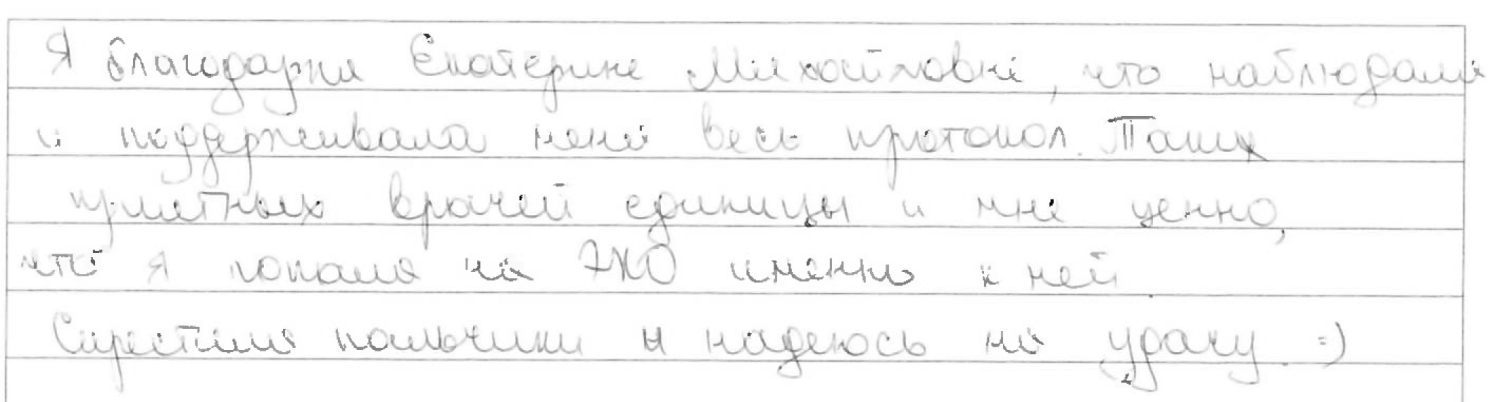 Я благодарна Екатерине Михайловне, что наблюдала
и поддерживала меня весь протокол. Таких
приятных врачей единицы и мне ценно,
что я попала на ЭКО именно к ней
Скрестила пальчики и надеюсь на удачу. =)